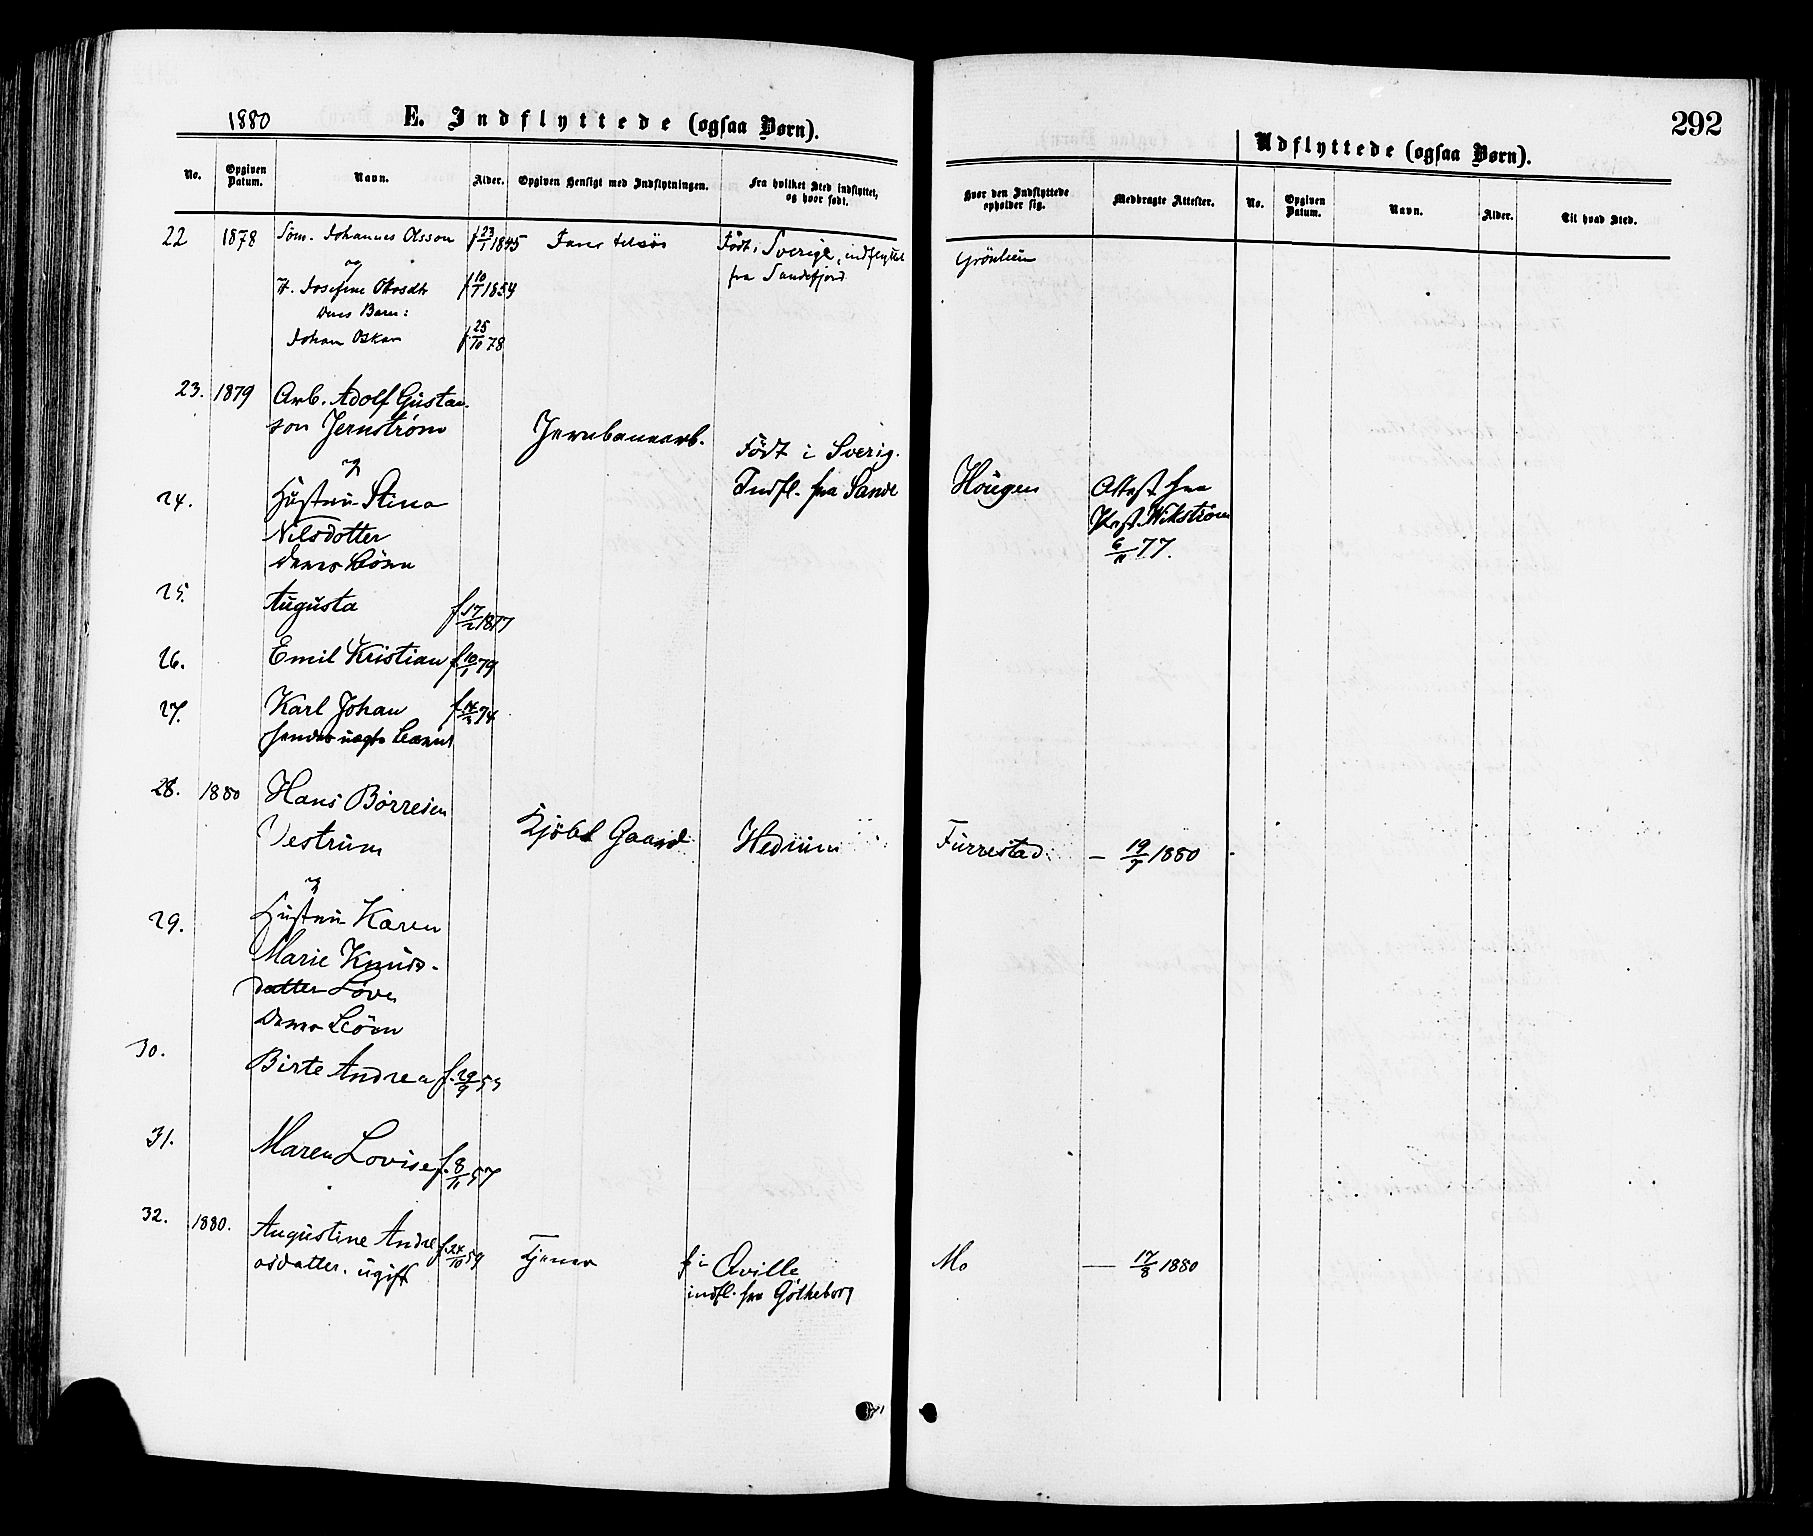 1880
E. Indflyttede (ogsaa Børn).
292
Udflyttede (ogsaa Børn).
No. Opgiven Datum. Navn. Alder. Opgiven Hensigt med Indflytningen. Fra hvilket Sted indflyttet, og hvor født.
Hvor den Indflyttede opholder sig. Medbragte Attester. No. Opgiven Datum. Navn. Alder. Til hvad Sted.
22 1878 Søm. Johannes Olsson f 23/1 1845 Fare tilsøs Født i Sverige, indflyttet Grönheim
og fra Sandefjord
H. Josefine f 10/1 1854
Deres Barn:
Johan Oskar f 25/10 78
23. 1879 Arb. Adolf Gustav-
son Jernstrøm Jernbanearb. Født i Sverig.
og Indfl. fra Sande Höugen Attest fra
24. Hustru Stina Præst Wikström
Nilsdotter 6/11 77.
deres Børn
25. Augusta f 17/2 1877
26. Emil Kristian f 10/1 79
27. Karl Johan f 14/3 74
hendes uægte Barn
28. 1880 Hans Børresen
Vestrum Kjøbt Gaard Hedrum Furrestad — 19/7 1880
og
29. Hustru Karen
Marie Knuds-
datter Løve
Deres Börn
30. Birte Andrea f. 29/9 55
31. Maren Lovise f. 8/11 57
32. 1880. Augustine Andre- f. 24/10 59 Tjener f i Qville Mo — 17/8 1880
asdatter. ugift indfl. fra Gøtheborg